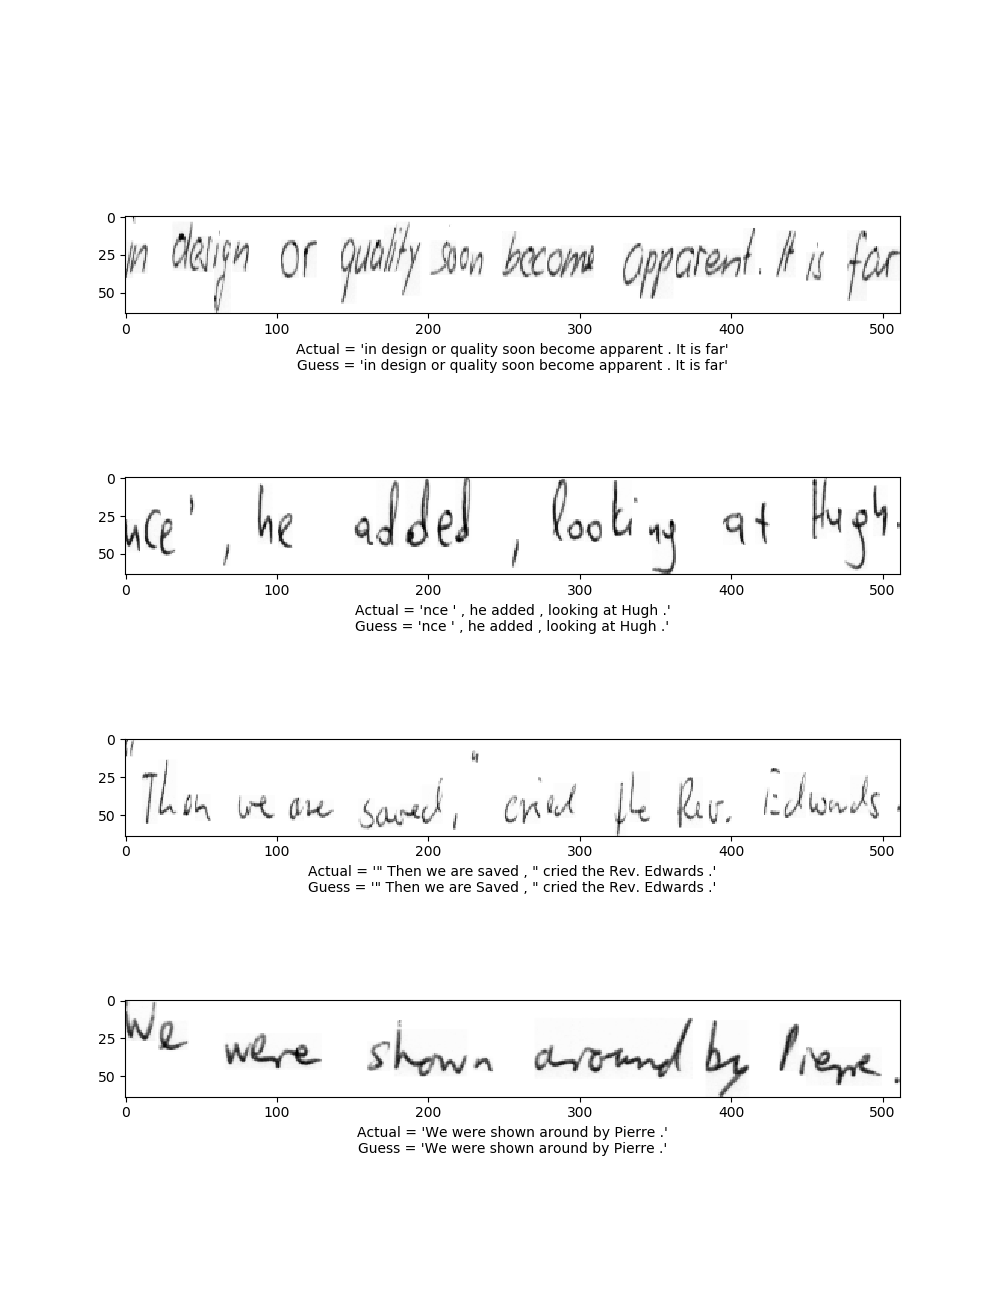 0
25
50
in design or quality soon become apparent. It is far
0 100 200 300 400 500
Actual = 'in design or quality soon become apparent . It is far'
Guess = 'in design or quality soon become apparent . It is far'
0
25
50
nce ', he added, looking at Hugh.
0 100 200 300 400 500
Actual = 'nce ' , he added , looking at Hugh .'
Guess = 'nce ' , he added , looking at Hugh .'
0
25
50
" Then we are saved, " cried the Rev. Edwards.
0 100 200 300 400 500
Actual = '" Then we are saved , " cried the Rev. Edwards .'
Guess = '" Then we are Saved , " cried the Rev. Edwards .'
0
25
50
We were shown around by Pierre.
0 100 200 300 400 500
Actual = 'We were shown around by Pierre .'
Guess = 'We were shown around by Pierre .'